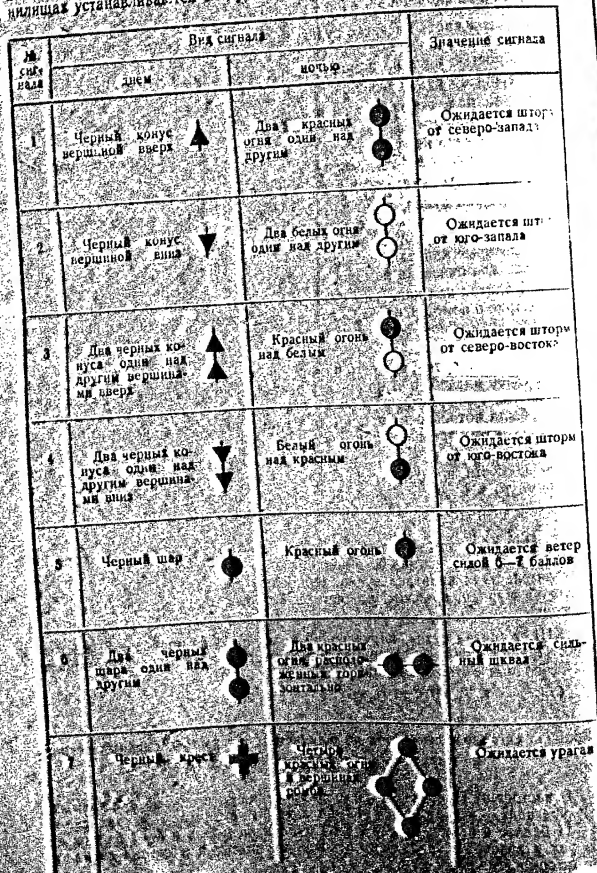 нилищах устанавливается
№ сигнала
Вид сигнала
Значение сигнала
днем
ночью
1
Черный конус
вершиной вверх
Два красных
огня один над
другим
Ожидается штор
от северо-запада
2
Черный конус
вершиной вниз
Два белых огня
один над другим
Ожидается шт
от юго-запада
3
Два черных ко-
нуса один над
другим вершина-
ми вверх
Красный огонь
над белым
Ожидается шторм
от северо-востока
4
Два черных ко-
нуса один над
другим вершина-
ми вниз
Белый огонь
над красным
Ожидается шторм
от юго-востока
5
Черный шар
Красный огонь
Ожидается ветер
силой 6—7 баллов
6
Два черных
шара один над
другим
Два красных
огня, располо-
женных гори-
зонтально
Ожидается силь-
ный шквал
7
Черный крест
Четыре
красных огня
в вершинах
ромба
Ожидается ураган